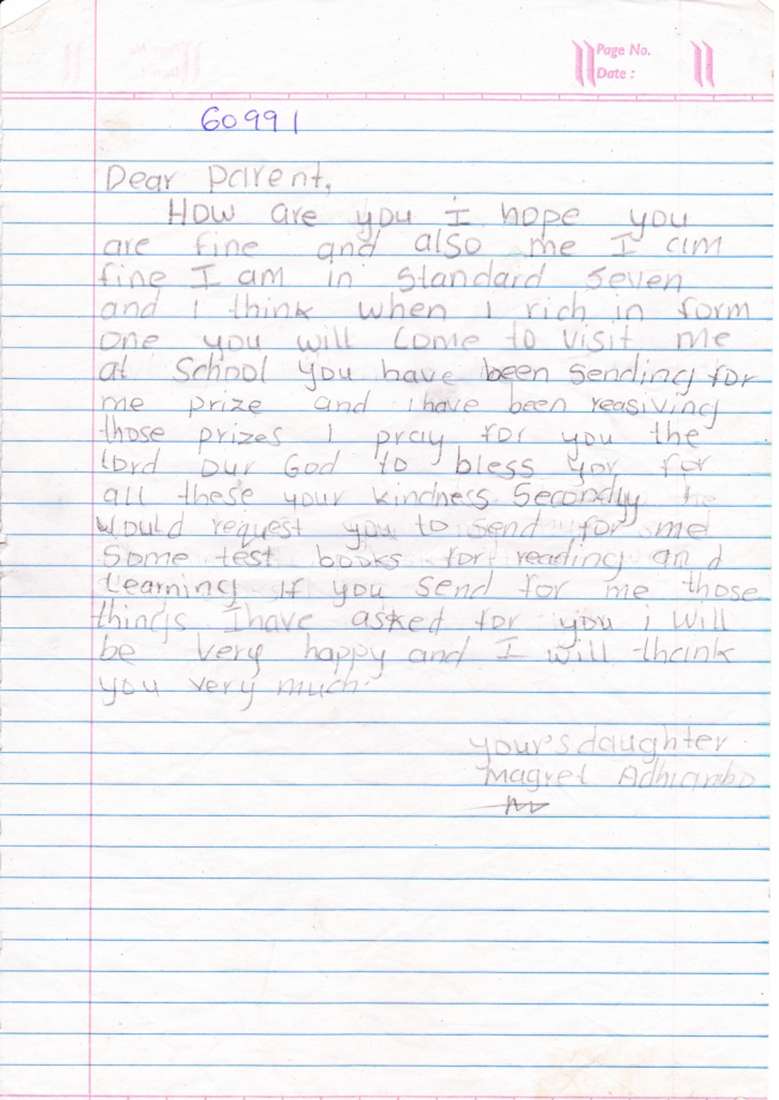 Page No.
Date :
60991
Dear parent,
How are you I hope you
are fine and also me I am
fine I am in standard seven
and I think when I rich in form
one you will come to visit me
at school you have been sending for
me prize and ihave been reasiving
those prizes I pray for you the
lord our God to bless yor for
all these your kindness Secondly
would request you to send for me
Some test books for reading and
learning If you send for me those
things Ihave asked for you i will
be very happy and I will thank
you very much.
your's daughter.
Magret Adhiambo